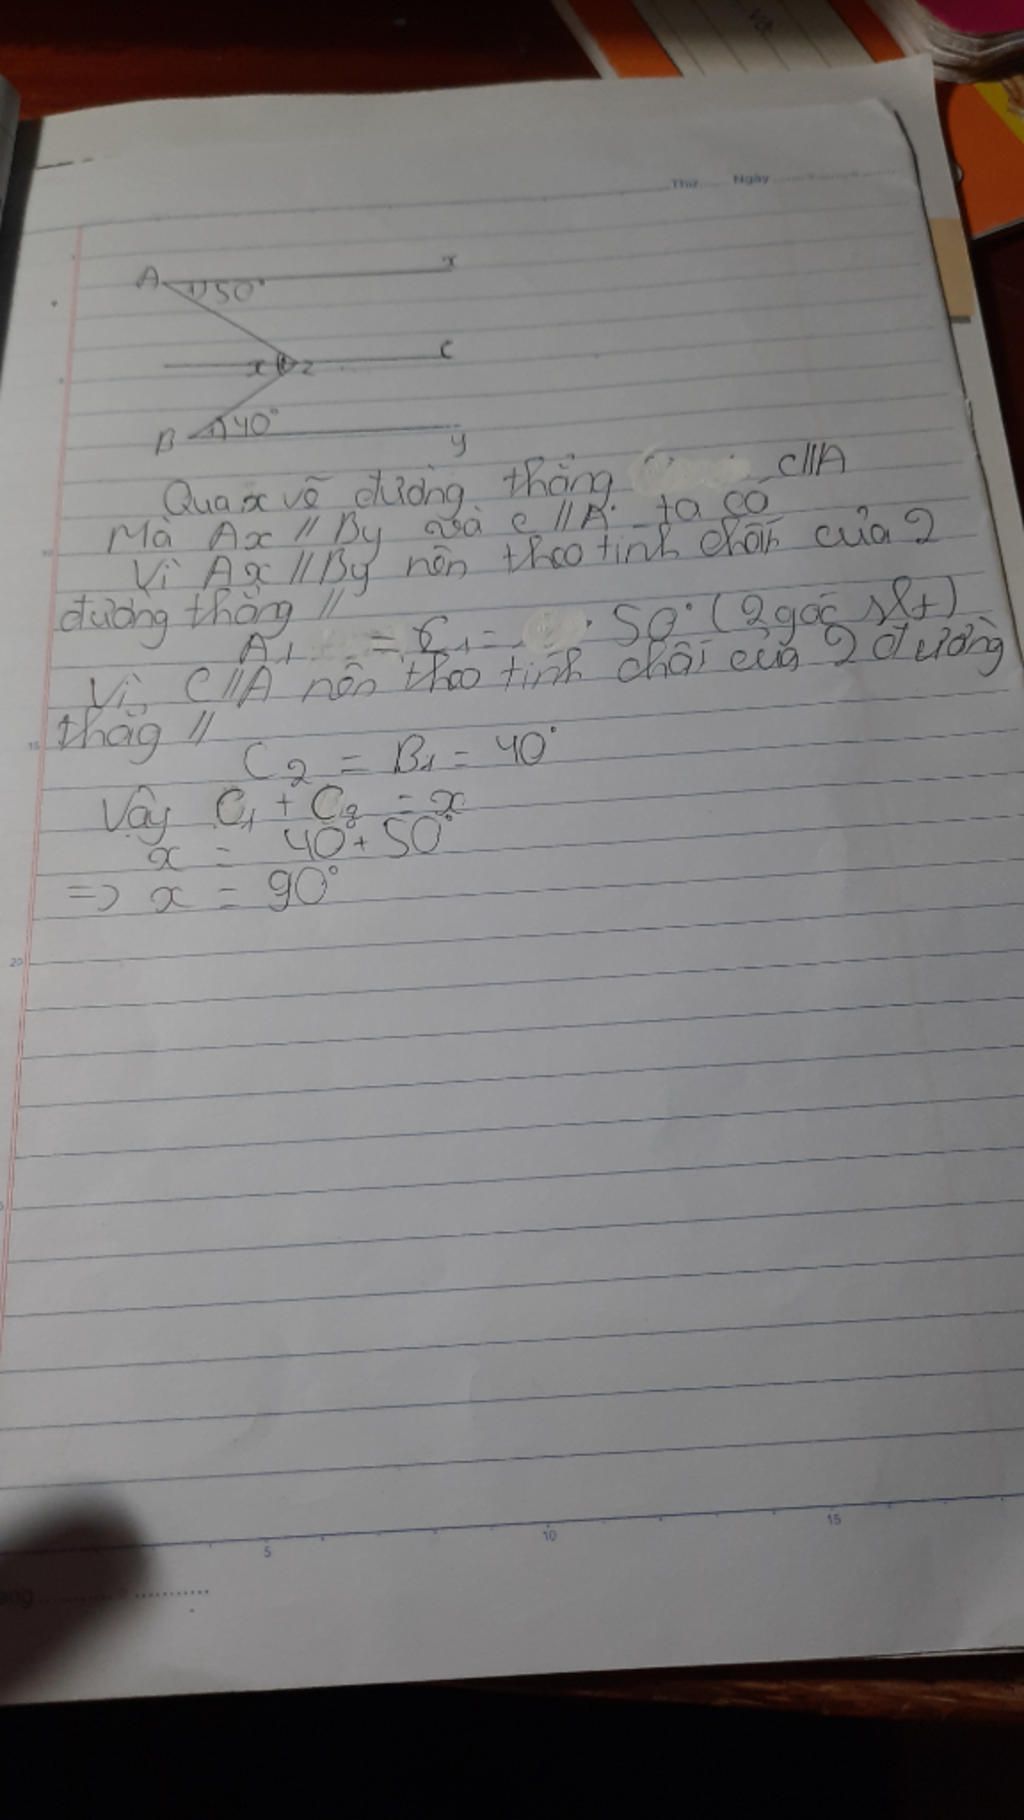 Thứ Ngày
A 1 50° x
x 1 2 c
B 1 40° y
Qua x vẽ đường thẳng c//A
Mà Ax // By và c // A ta có
Vì Ax // By nên theo tính chất của 2
đường thẳng //
A1 = C1 = 50° (2 góc slt)
Vì C//A nên theo tính chất của 2 đường
thăg //
C2 = B1 = 40°
Vậy C1 + C2 = x
x = 40 + 50°
=> x = 90°
5 10 15